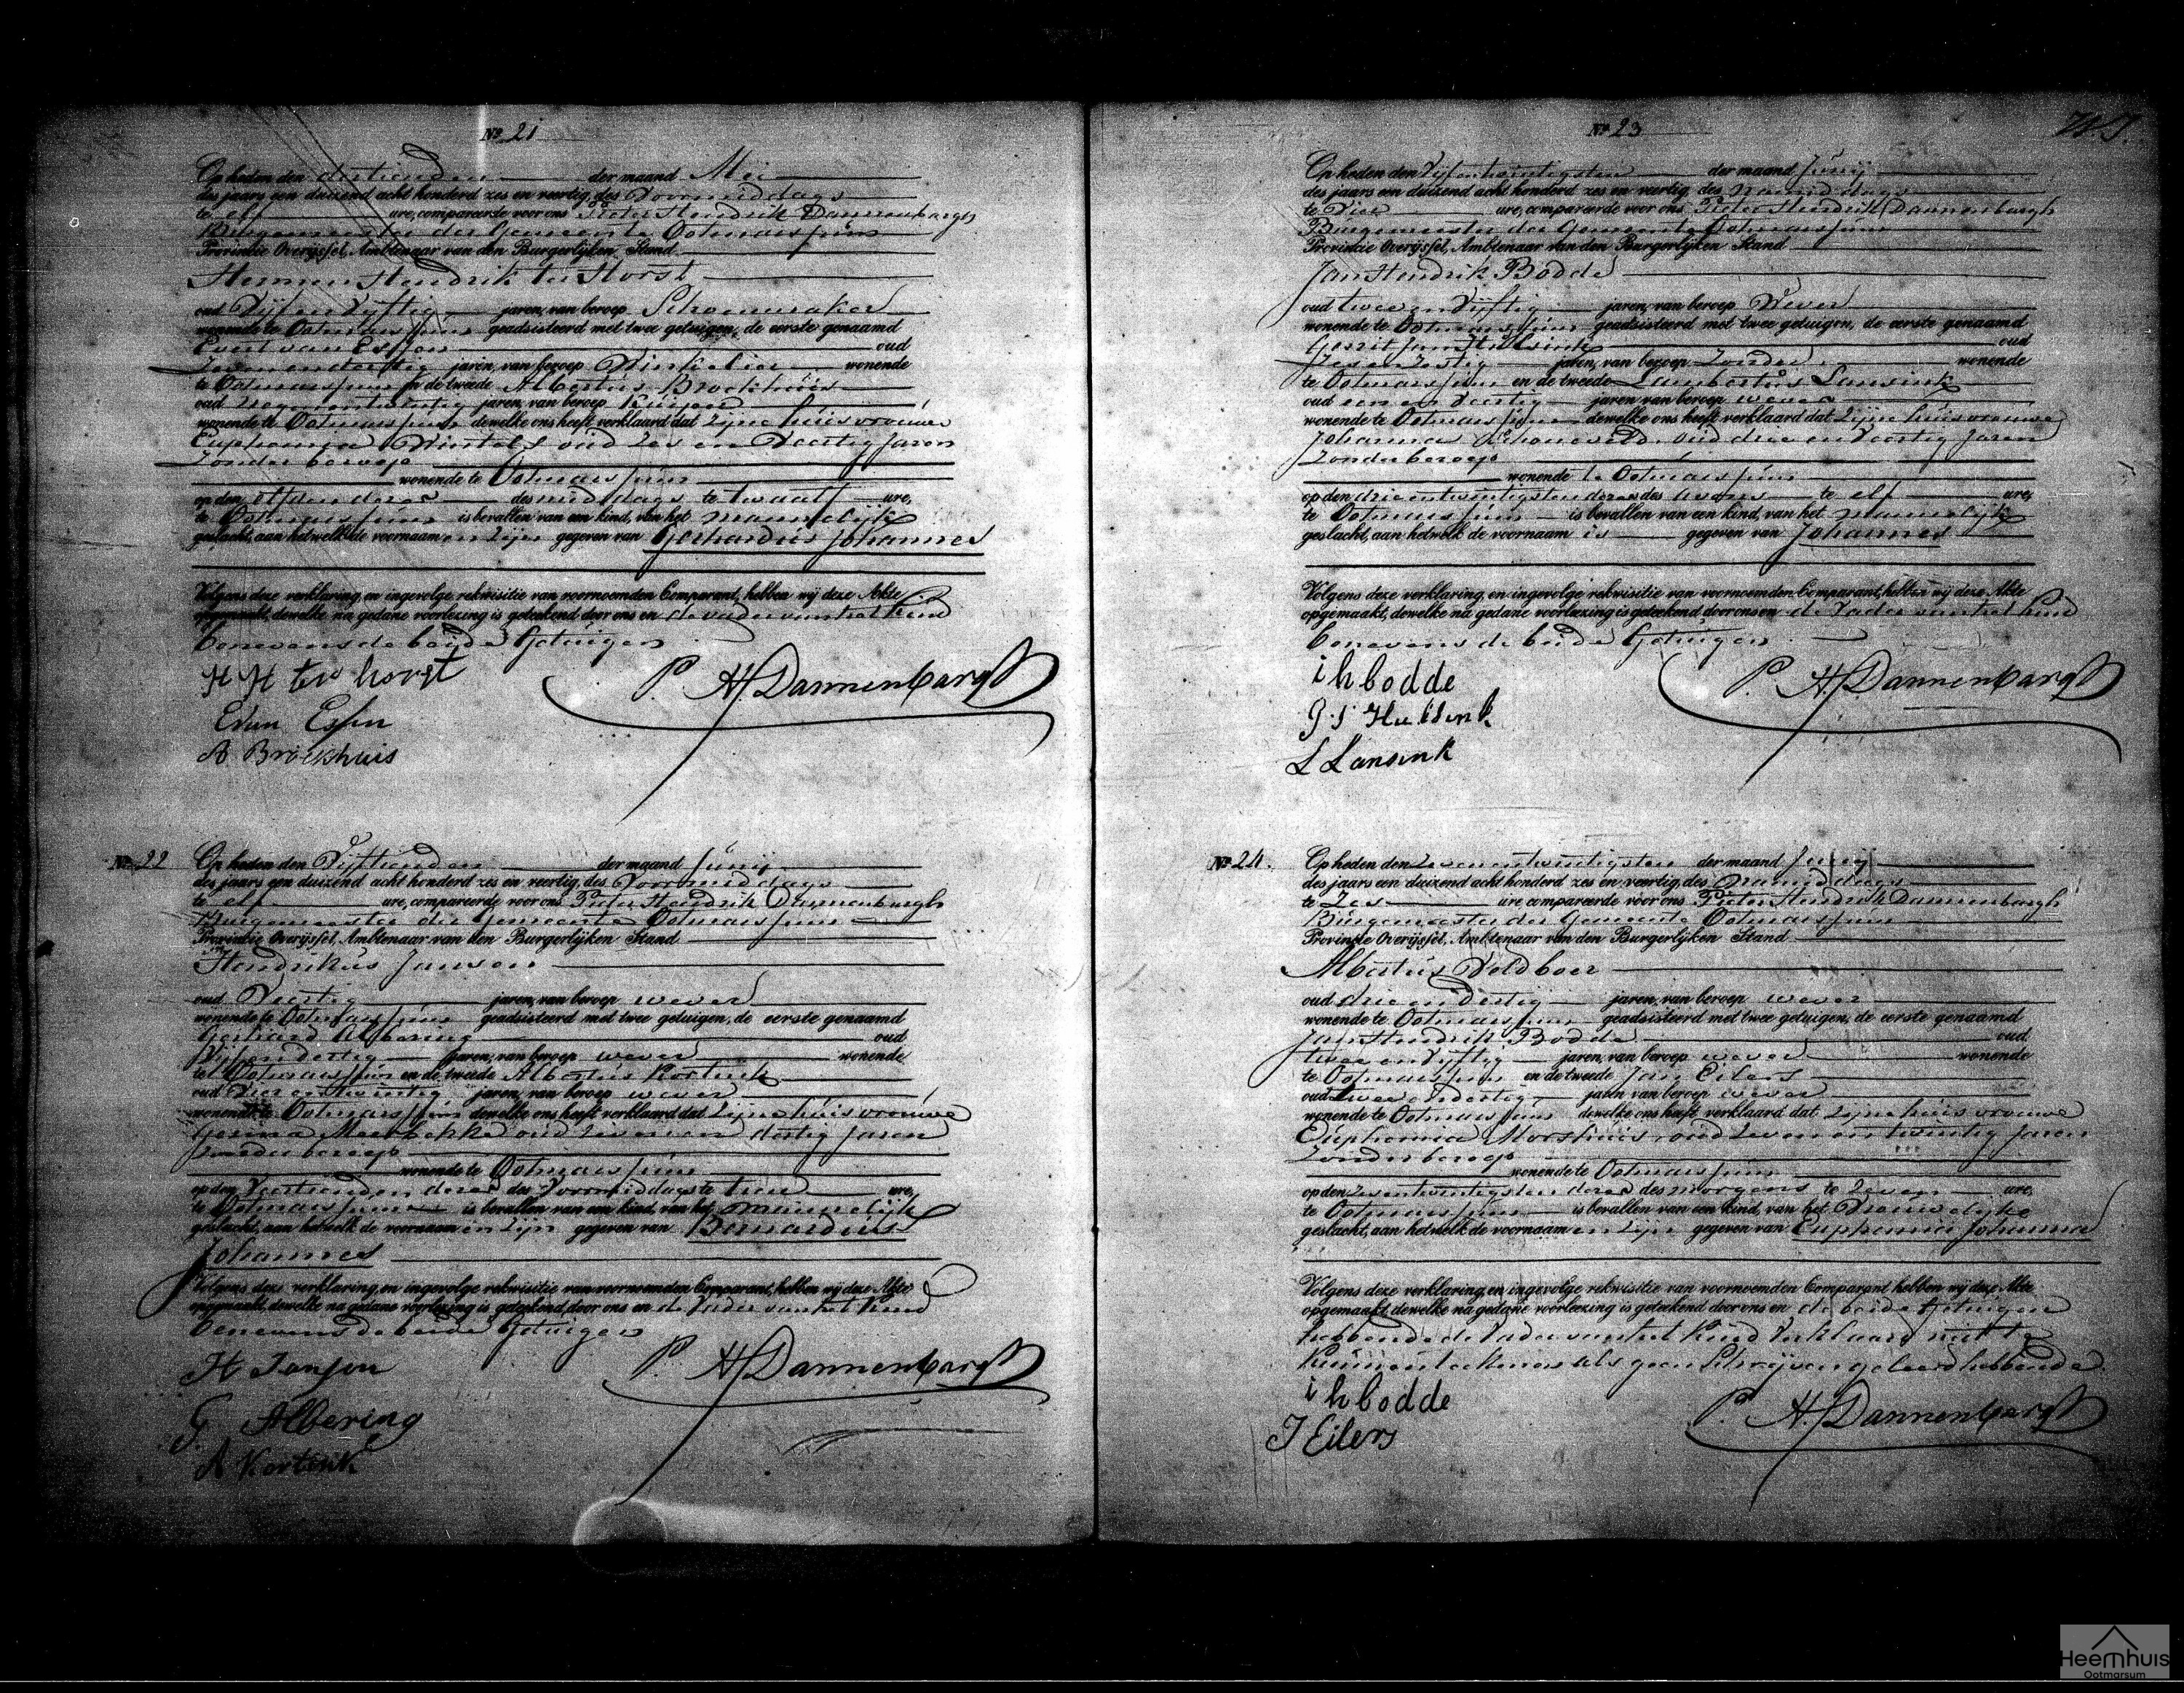 No 21
Op heden den dertienden der maand Mei
des jaars een duizend acht honderd zes en veertig, des Voormiddags
te elf ure, compareerde voor ons Pieter Hendrik Dannenbargh
Burgemeester der Gemeente Ootmarssum
Provincie Overijssel, Ambtenaar van den Burgerlijken Stand
Hermen Hendrik ter Horst
oud Vijf en Vyftig jaren, van beroep Schoenmaker
wonende te Ootmarssum geadsisteerd met twee getuigen, de eerste genaamd
Evert van Essen oud
Zeven en dertig jaren, van beroep Winkelier wonende
te Ootmarssum en de tweede Albertus Broekhuis
oud negenentwintig jaren, van beroep
wonende te Ootmarssum dewelke ons heeft verklaard dat Zijne huisvrouwe
Euphemia oud Zes en Veertig Jaren
Zonder beroep
wonende te Ootmarssum
op den elfden dezer des middags te twaalf ure,
te Ootmarssum is bevallen van een kind, van het mannelijk
geslacht, aan hetwelk de voornaamen zijn gegeven van Gerhardus Johannes
Volgens deze verklaring, en ingevolge rekwisitie van voornoemden Comparant, hebben wij deze Akte
opgemaakt, dewelke na gedane voorlezing is geteekend door ons en de vader van het Kind
benevens de beide Getuigen
H H ter horst P. H. Dannenbargh
E van Essen
A Broekhuis
No 22
Op heden den Vijftienden der maand Junij
des jaars een duizend acht honderd zes en veertig, des Voormiddags
te elf ure, compareerde voor ons Pieter Hendrik Dannenbargh
Burgemeester der Gemeente Ootmarssum
Provincie Overijssel, Ambtenaar van den Burgerlijken Stand
Hendrikus Jansen
oud Veertig jaren, van beroep wever
wonende te Ootmarssum geadsisteerd met twee getuigen, de eerste genaamd
Gerhard Albering oud
Vijf en dertig jaren, van beroep wever wonende
te Ootmarssum en de tweede Albertus Kortink
oud Vier en twintig jaren, van beroep wever
wonende te Ootmarssum dewelke ons heeft verklaard dat Zijne huisvrouwe
Meerbekke oud Zeven en dertig Jaren
Zonder beroep
wonende te Ootmarssum
op den Veertienden dezer des Voormiddags te tien ure,
te Ootmarssum is bevallen van een kind, van het mannelijk
geslacht, aan hetwelk de voornaamen zijn gegeven van Bernardus
Johannes
Volgens deze verklaring, en ingevolge rekwisitie van voornoemden Comparant, hebben wij deze Akte
opgemaakt, dewelke na gedane voorlezing is geteekend door ons en de Vader van het Kind
benevens de beide Getuigen
H Jansen P. H. Dannenbargh
G Albering
A Kortink
No 23
Op heden den Vijfentwintigsten der maand Junij
des jaars een duizend acht honderd zes en veertig, des namiddags
te Vier ure, compareerde voor ons Pieter Hendrik Dannenbargh
Burgemeester der Gemeente Ootmarssum
Provincie Overijssel, Ambtenaar van den Burgerlijken Stand
Jan Hendrik Bodde
oud twee en Vijftig jaren, van beroep Wever
wonende te Ootmarssum geadsisteerd met twee getuigen, de eerste genaamd
Gerrit Jan Hulsink oud
jaren, van beroep Zonder wonende
te Ootmarssum en de tweede Lambertus Lansink
oud een en Veertig jaren van beroep wever
wonende te Ootmarssum dewelke ons heeft verklaard dat Zijne huisvrouwe
Johanna Schoneveld oud drie en Veertig Jaren
Zonder beroep
wonende te Ootmarssum
op den drie entwintigsten dezer des avonds te elf ure,
te Ootmarssum is bevallen van een kind, van het mannelijk
geslacht, aan hetwelk de voornaam is gegeven van Johannes
Volgens deze verklaring, en ingevolge rekwisitie van voornoemden Comparant, hebben wij deze Akte
opgemaakt, dewelke na gedane voorlezing is geteekend door ons en de Vader van het Kind
benevens de beide Getuigen
i h bodde P. H. Dannenbargh
G. J Hulsink
L Lansink
No 24.
Op heden den Zevenentwintigsten der maand Junij
des jaars een duizend acht honderd zes en veertig, des namiddags
te Zes ure compareerde voor ons Pieter Hendrik Dannenbargh
Burgemeester der Gemeente Ootmarssum
Provincie Overijssel, Ambtenaar van den Burgerlijken Stand
Albertus Veldboer
oud drie en dertig jaren, van beroep wever
wonende te Ootmarssum geadsisteerd met twee getuigen, de eerste genaamd
Jan Hendrik Bodde oud
twee en Vyftig jaren, van beroep wever wonende
te Ootmarssum en de tweede Jan Eilers
oud twee en dertig jaren van beroep wever
wonende te Ootmarssum dewelke ons heeft verklaard dat Zijne huisvrouwe
Euphemia Morshuis oud Zeven en twintig Jaren
Zonder beroep
wonende te Ootmarssum
op den Zesentwintigsten dezer des morgens te Zeven ure,
te Ootmarssum is bevallen van een kind, van het Vrouwelijke
geslacht, aan hetwelk de voornaamen zijn gegeven van Euphemia Johanna
Volgens deze verklaring, en ingevolge rekwisitie van voornoemden Comparant hebben wij deze Akte
opgemaakt dewelke na gedane voorlezing is geteekend door ons en de beide Getuigen
hebbende de Vader van het Kind Verklaard niet te
Kunnen teekenen als geen Schrijven geleerd hebbende
i h bodde P. H. Dannenbargh
J Eilers
Heemhuis
Ootmarsum